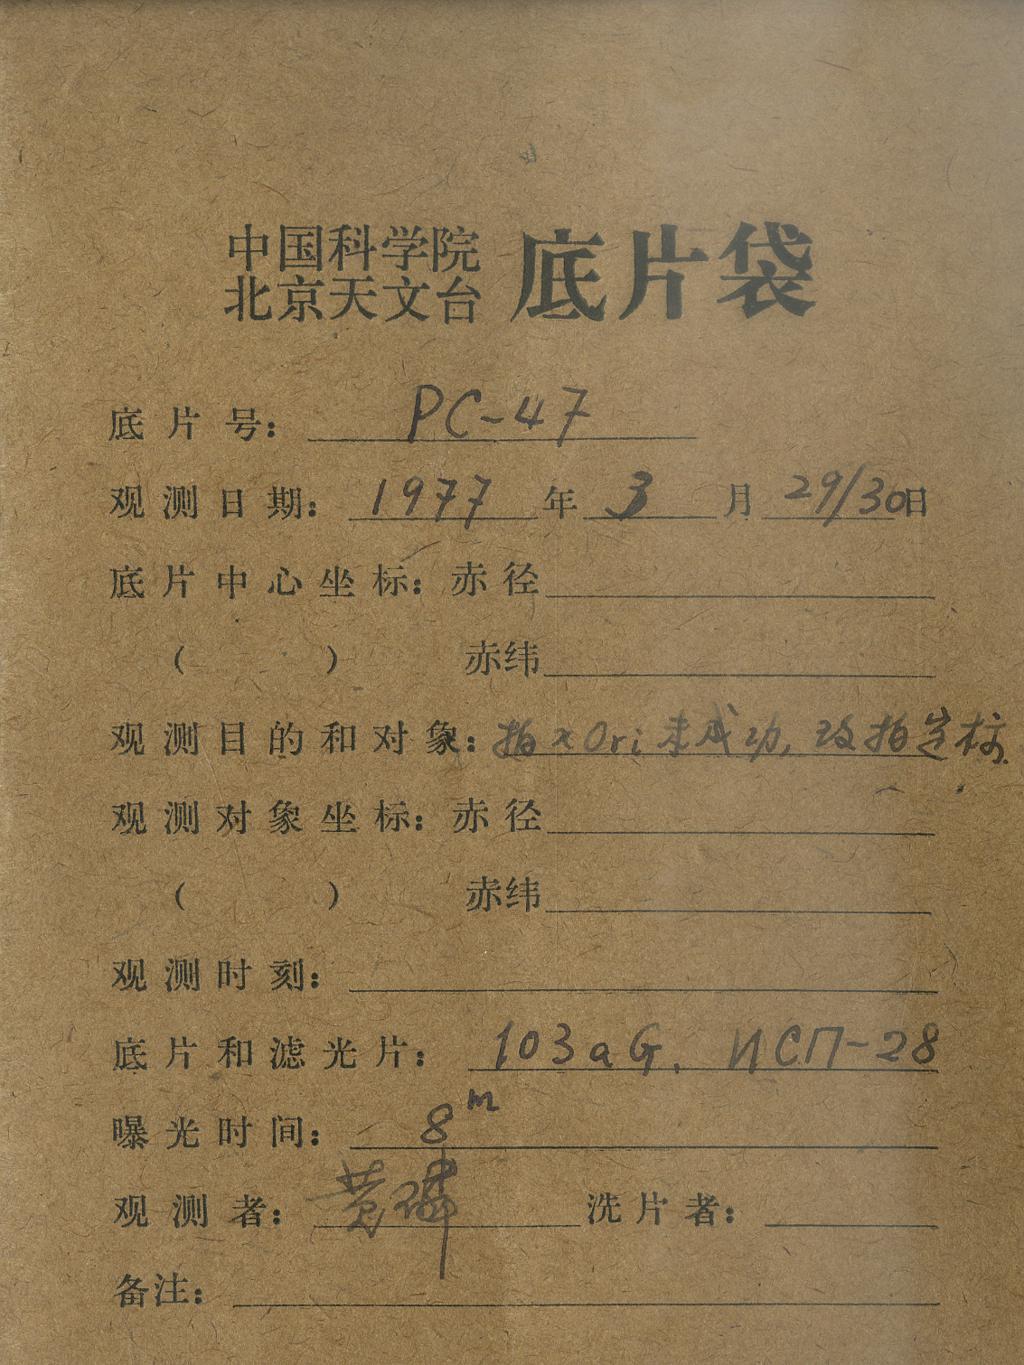 中国科学院
北京天文台 底片袋
底片号： PC-47
观测日期： 1977 年 3 月 29/30日
底片中心坐标：赤径
（ ） 赤纬
观测目的和对象：拍 x Ori 未成功，改拍定标
观测对象坐标：赤径
（ ） 赤纬
观测时刻：
底片和滤光片： 103aG. ИСП-28
曝光时间： 8m
观测者：黄磷 洗片者：
备注：